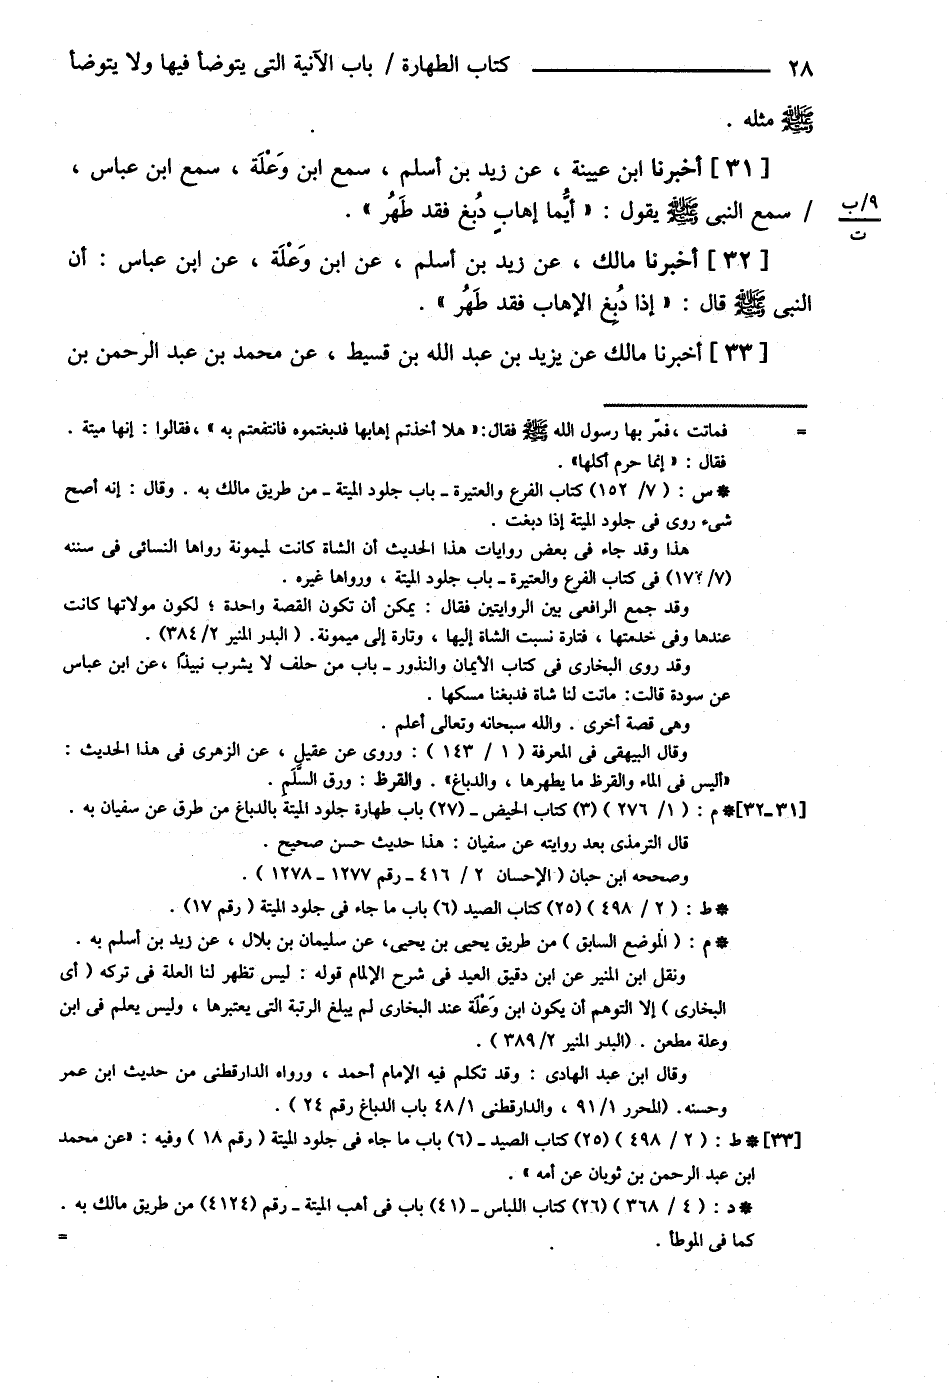 ٢٨ ـــــــــ كتاب الطهارة / باب الآنية التى يتوضأ فيها ولا يتوضأ
ﷺ مثله .
[ ٣١ ] أخبرنا ابن عيينة ، عن زيد بن أسلم ، سمع ابن وَعْلَة ، سمع ابن عباس ،
/ سمع النبى ﷺ يقول : « أيُّما إهابٍ دُبغ فقد طَهُر » .
٩/ب
ت
[ ٣٢ ] أخبرنا مالك ، عن زيد بن أسلم ، عن ابن وَعْلَة ، عن ابن عباس : أن
النبى ﷺ قال : « إذا دُبِغ الإهاب فقد طَهُر » .
[ ٣٣ ] أخبرنا مالك عن يزيد بن عبد الله بن قسيط ، عن محمد بن عبد الرحمن بن
= فماتت ،فمّر بها رسول الله ﷺ فقال:« هلا أخذتم إهابها فدبغتموه فانتفعتم به » ،فقالوا : إنها ميتة .
فقال : « إنما حرم أكلها» .
* س : ( ٧/ ١٥٢) كتاب الفرع والعتيرة ـ باب جلود الميتة ـ من طريق مالك به . وقال : إنه أصح
شىء روى فى جلود الميتة إذا دبغت .
هذا وقد جاء فى بعض روايات هذا الحديث أن الشاة كانت لميمونة رواها النسائى فى سننه
فى كتاب الفرع والعتيرة ـ باب جلود الميتة ، ورواها غيره .
وقد جمع الرافعى بين الروايتين فقال : يمكن أن تكون القصة واحدة ؛ لكون مولاتها كانت
عندها وفى خدمتها ، فتارة نسبت الشاة إليها ، وتارة إلى ميمونة. ( البدر المنير ٢/ ٣٨٤) .
وقد روى البخارى فى كتاب الأيمان والنذور ـ باب من حلف لا يشرب نبيذًا ،عن ابن عباس
عن سودة قالت: ماتت لنا شاة فدبغنا مسكها .
وهى قصة أخرى . والله سبحانه وتعالى أعلم .
وقال البيهقى فى المعرفة ( ١ / ١٤٣ ) : وروى عن عقيل ، عن الزهرى فى هذا الحديث :
«أليس فى الماء والقرظ ما يطهرها ، والدباغ» . والقرظ : ورق السَّلَمِ .
[٣١ـ٣٢]* م : ( ١/ ٢٧٦ ) (٣) كتاب الحيض ـ (٢٧) باب طهارة جلود الميتة بالدباغ من طرق عن سفيان به .
قال الترمذى بعد روايته عن سفيان : هذا حديث حسن صحيح .
وصححه ابن حبان ( الإحسان ٢ / ٤١٦ ـ رقم ١٢٧٧ ـ ١٢٧٨ ) .
* ط : ( ٢ / ٤٩٨ ) (٢٥) كتاب الصيد (٦) باب ما جاء فى جلود الميتة ( رقم ١٧) .
* م : ( الموضع السابق ) من طريق يحيى بن يحيى، عن سليمان بن بلال ، عن زيد بن أسلم به .
ونقل ابن المنير عن ابن دقيق العيد فى شرح الإلمام قوله : ليس تظهر لنا العلة فى تركه ( أى
البخارى ) إلا التوهم أن يكون ابن وَعْلَة عند البخارى لم يبلغ الرتبة التى يعتبرها ، وليس يعلم فى ابن
وعلة مطعن . (البدر المنير ٢/ ٣٨٩ ) .
وقال ابن عبد الهادى : وقد تكلم فيه الإمام أحمد ، ورواه الدارقطنى من حديث ابن عمر
وحسنه. (المحرر ١/ ٩١ ، والدارقطنى ١/ ٤٨ باب الدباغ رقم ٢٤ ) .
[٣٣] * ط : ( ٢ / ٤٩٨ ) (٢٥) كتاب الصيد ـ (٦) باب ما جاء فى جلود الميتة ( رقم ١٨ ) وفيه : «عن محمد
ابن عبد الرحمن بن ثوبان عن أمه » .
* د : ( ٤ / ٣٦٨ ) (٢٦) كتاب اللباس ـ (٤١) باب فى أهب الميتة ـ رقم (٤١٢٤) من طريق مالك به .
كما فى الموطأ . =